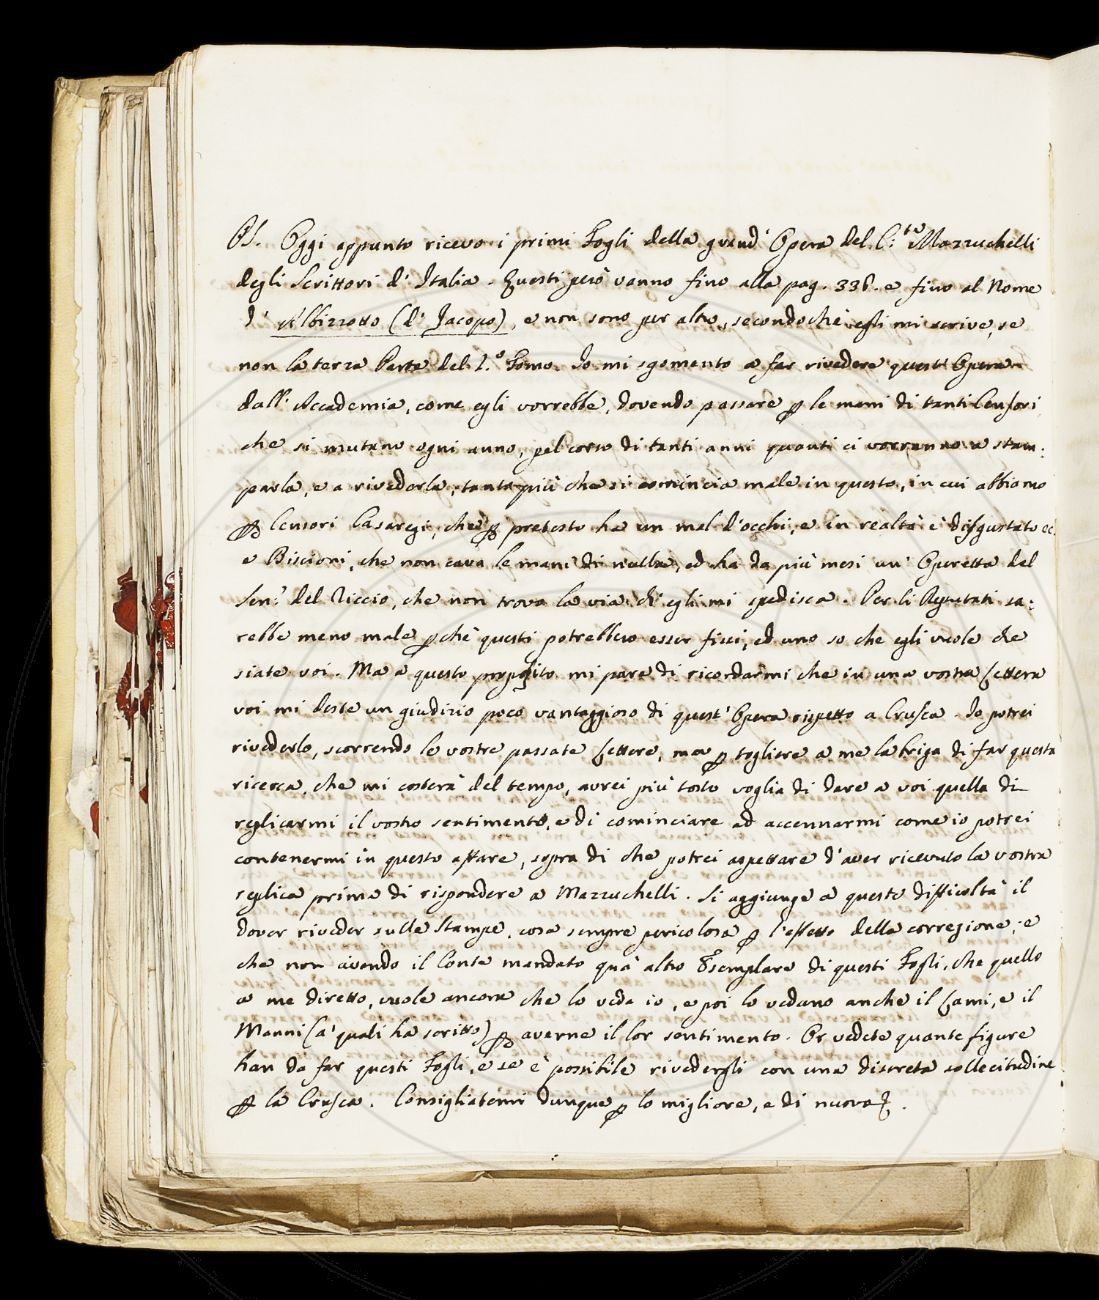 PS. Oggi appunto ricevo i primi Fogli della grand' Opera del C.te Mazzuchelli
degli Scrittori d' Italia. Questi però vanno fino alla pag. 336. e fino al Nome
d' Albizzotto (d' Jacopo), e non sono per altro, secondochè egli mi scrive, se
non la terza Parte del I.o Tomo. Io mi sgomento a far rivedere quest' Opera
dall' Accademia, come egli vorrebbe, dovendo passare p le mani di tanti Censori,
che si mutano ogni anno, pel corso di tanti anni quanti ci vorranno a stam:
parla, e a rivederla; tanto più che si comincia male in questo, in cui abbiamo
p Censori Casaregi, che p pretesto ha un mal d'occhi, e in realtà è disgustato ec.
e Biscioni, che non cava le mani di nulla, ed ha da più mesi un' Operetta del
Sen.r del Riccio, che non trova la via ch' egli mi spedisca. Per li Deputati sa:
rebbe meno male pchè questi potrebbero esser fissi, ed uno so che egli vuole che
siate voi. Ma a questo proposito mi pare di ricordarmi che in una vostra Lettera
voi mi deste un giudizio poco vantaggioso di quest' Opera rispetto a Crusca. Io potrei
rivederlo, scorrendo le vostre passate Lettere, ma p togliere a me la briga di far questa
ricerca, che mi costerà del tempo, avrei più tosto voglia di dare a voi quella di
replicarmi il vostro sentimento, e di cominciare ad accennarmi come io potrei
contenermi in questo affare, sopra di che potrei aspettare d'aver ricevuto la vostra
replica prima di rispondere a Mazzuchelli. Si aggiunge a queste difficoltà il
dover riveder sulle Stampe, cosa sempre pericolosa p l'effetto della correzione; e
che non avendo il Conte mandato quà altro Esemplare di questi Fogli, che quello
a me diretto, vuole ancora che lo veda io, e poi lo vedano anche il Lami, e il
Manni (a' quali ha scritto) p averne il lor sentimento. Or vedete quante figure
han da far questi Fogli, e se è possibile rivedergli con una discreta sollecitudine
p la Crusca. Consigliatemi dunque p lo migliore, e di nuovo